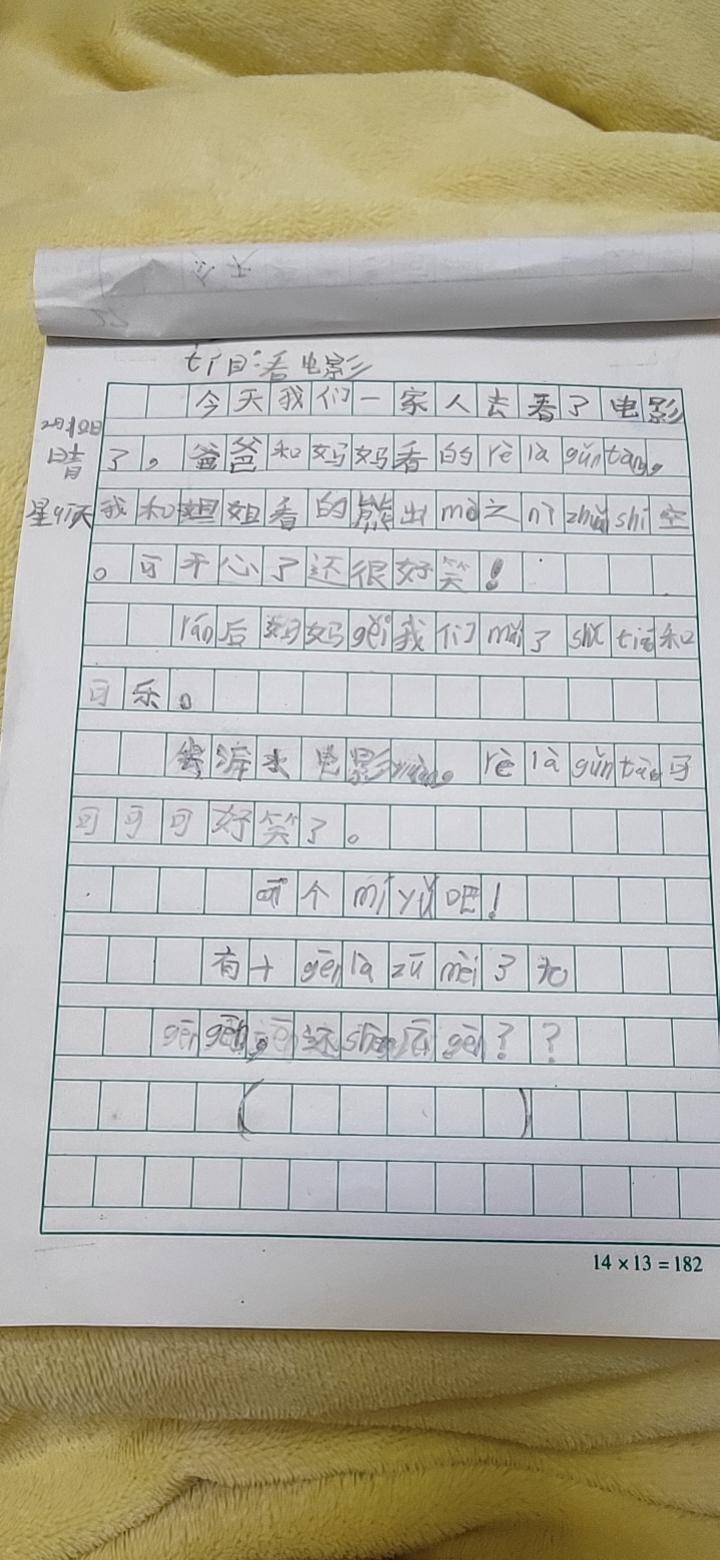 tí目:看电影
今天我们一家人去看了电影
2月19日
晴
星qī天
了，爸爸和妈妈看的rè là gǔn tàng。
我和姐姐看的熊出mò之nì zhuǎn shí空
。可开心了还很好笑！
rán后妈妈gěi我们mǎi了shǔ tiáo和
可乐。
电影yuàng。rè là gǔn tàng可
可可可好笑了。
个mí yǔ吧！
有十gēn là zú mèi了
gēn gēn还shèng jǐ gēn？？
(　)
14×13=182